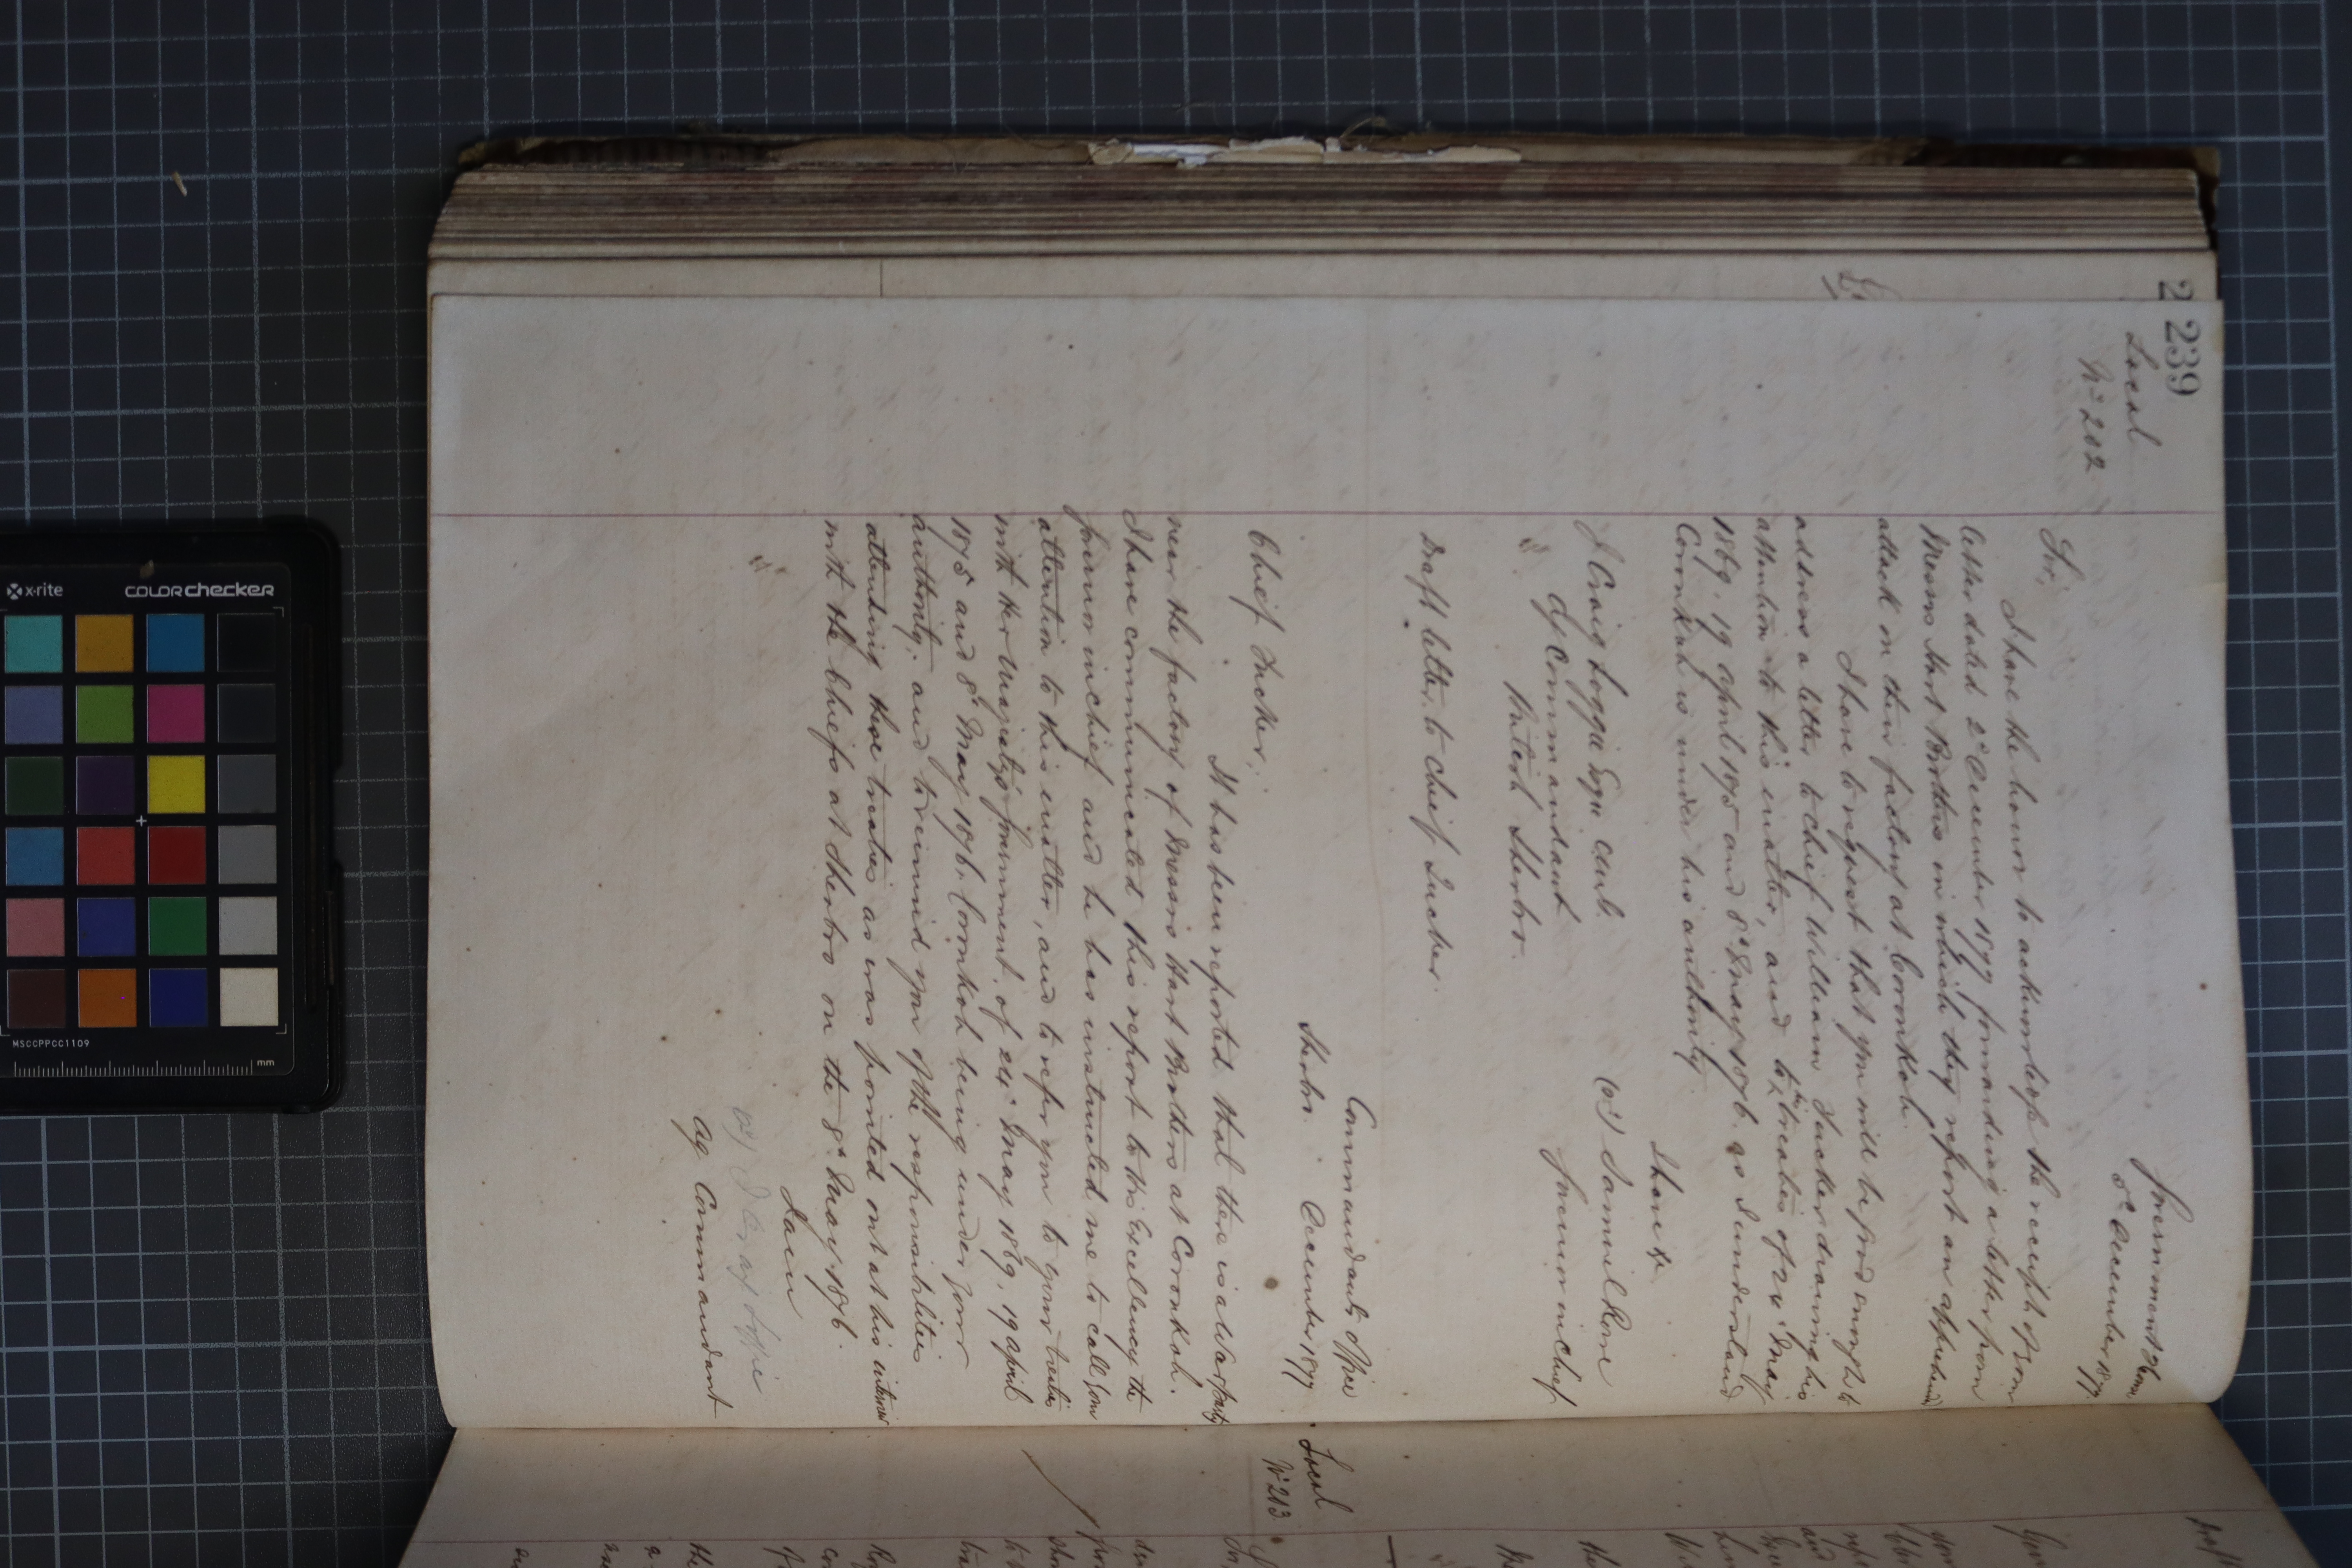 239
Local
No 202
Government House
5th December 1877
Sir,
I have the honor to acknowledge the receipt of your
letter dated 2d December 1877 forwarding a letter from
Messrs Hart Brothers in which they report an apprehended
attack on their factory at Coronkah.
I have to request that you will be good enough to
address a letter to Chief William Tucker drawing his
attention to this matter, and to the treaties of 24th May
1869. 19 April 1875 and 8th May 1876. as I understand
Coronkah is under his authority.
I have &c
(sd) Samuel Rowe
Governor in Chief
J Craig Loggie Esqr
Ag Commandant
British Sherbro.
Draft letter to Chief Tucker.
Commandants Office
Sherbro. December 1877.
Chief Tucker,
It has been reported that there is a War party
near the factory of Messrs Hart Brothers at Coronkah.
I have communicated this report to His Excellency the
Governor in chief and he has instructed me to call your
attention to this matter, and to refer you to your treaties
with Her Majesty's Government of 24th May 1869, 19 April
1875 and 8th May 1876, Coronkah being under your
authority, and to remind you of the responsibilities
attending these treaties as was pointed out at his interview
with the Chiefs at Sherbro on the 8th May 1876.
I am
(sd) J Craig Loggie
Ag Commandant
Local
No 203
x-rite
COLORchecker
MSCCPPCC1109
mm